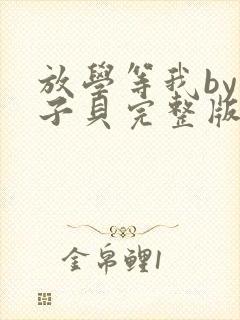 放學等我by
子貝完整版
金帛鲤1